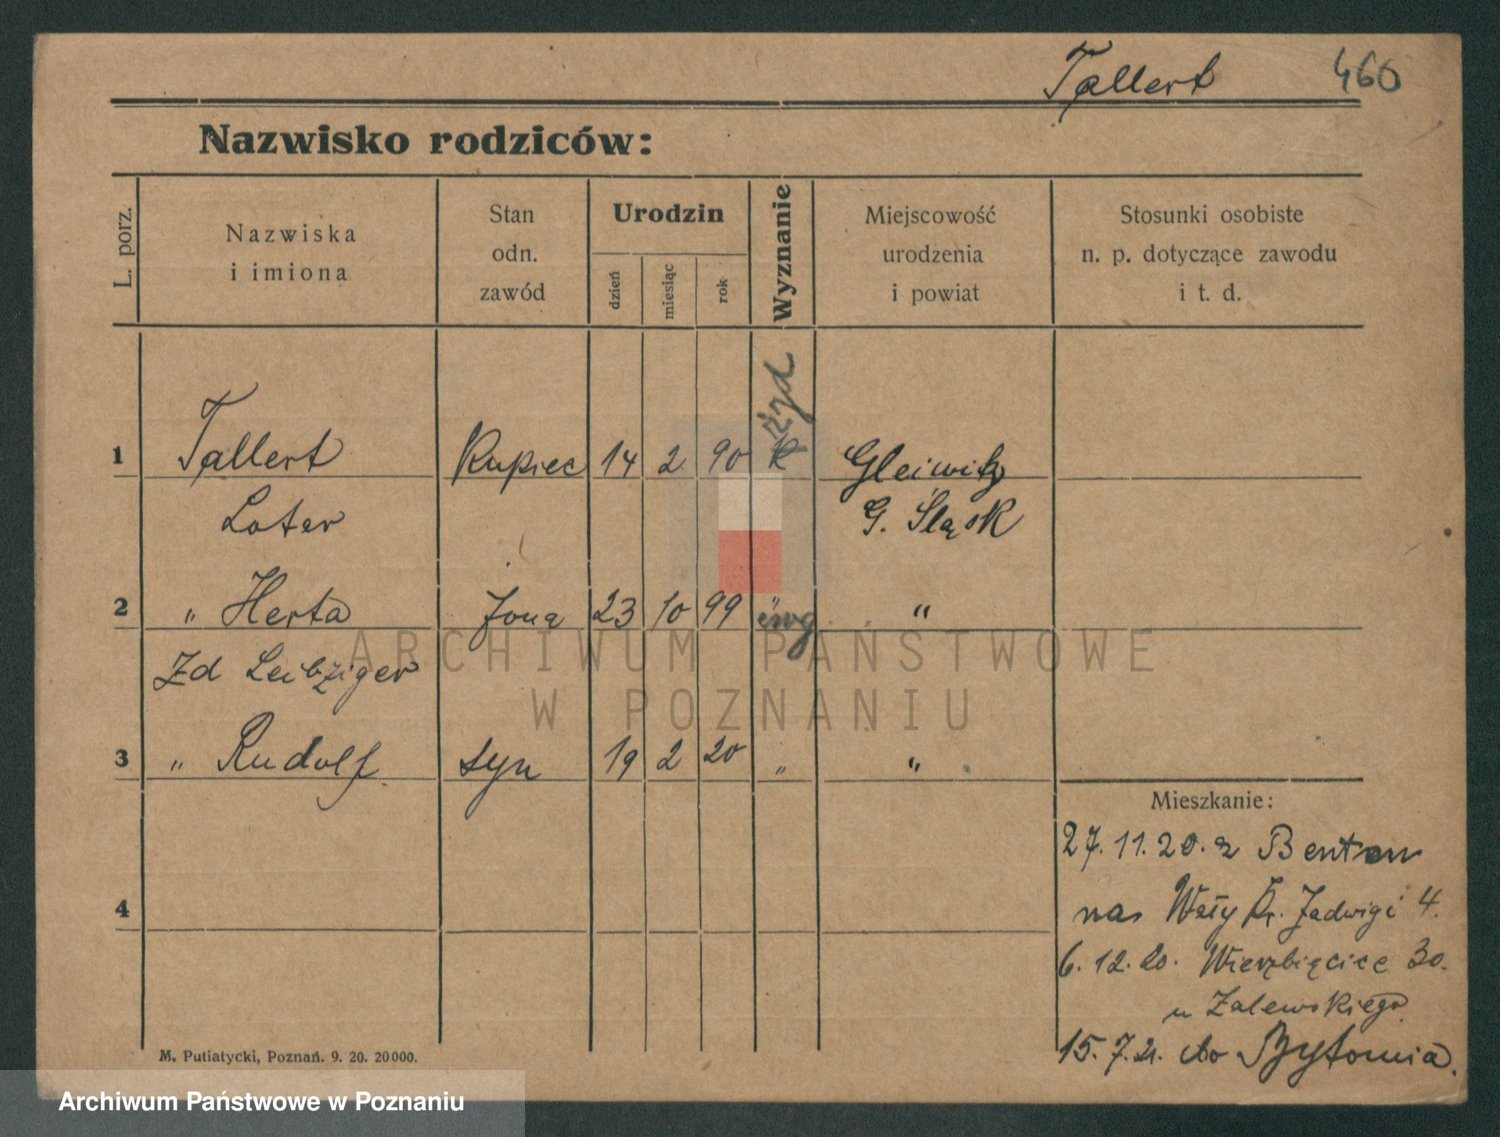 Tallert 460
Nazwisko rodziców:
L. porz.
Nazwiska
i imiona
Stan
odn.
zawód
Urodzin
dzień
miesiąc
rok
Wyznanie
Miejscowość
urodzenia
i powiat
Stosunki osobiste
n. p. dotyczące zawodu
i t. d.
żyd
1 Tallert Kupiec 14 2 90 K Gleiwitz
Loter G. Śląsk
2 " Herta żona 23 10 99 " "
ewg
Zd Leibziger
3 " Rudolf syn 19 2 20 " "
4
Mieszkanie:
27.11.20. z
Wały Kr. Jadwigi 4.
6.12.20. Wierzbięcice 30.
u Zalewskiego
15.7.21. do Bytomia.
M. Putiatycki, Poznań. 9. 20. 20000.
ARCHIWUM PAŃSTWOWE
W POZNANIU
Archiwum Państwowe w Poznaniu